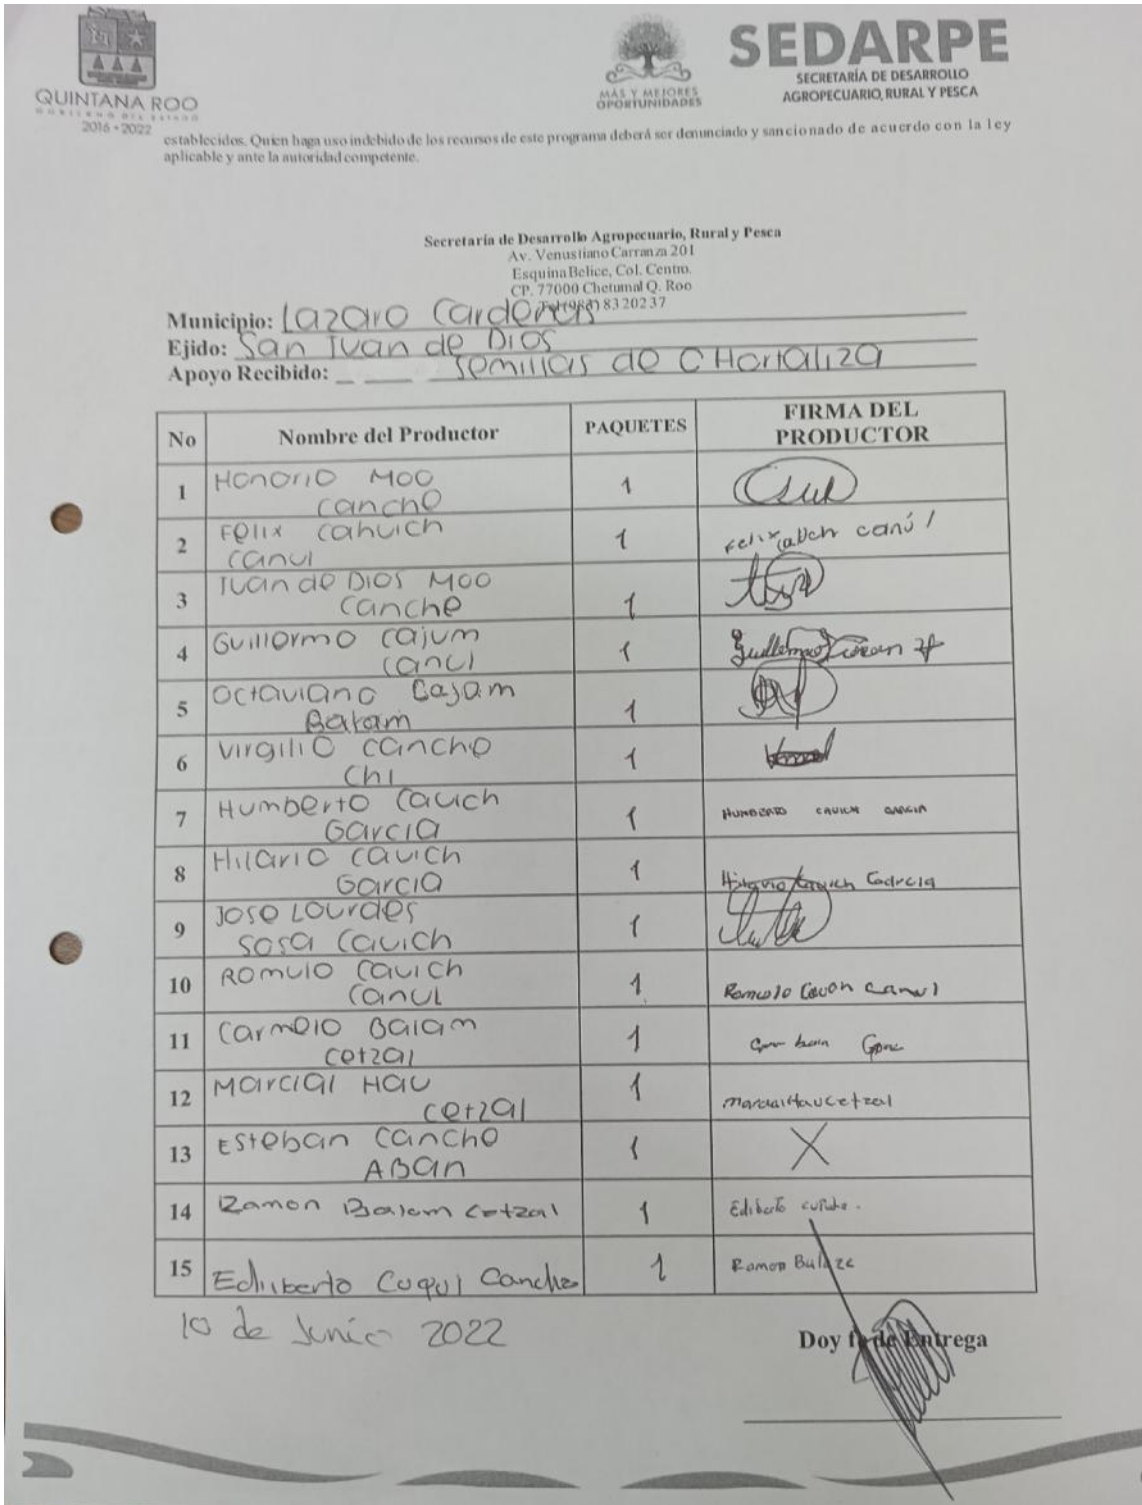 QUINTANA ROO
GOBIERNO DEL ESTADO
2016 - 2022
MÁS Y MEJORES
OPORTUNIDADES
SEDARPE
SECRETARÍA DE DESARROLLO
AGROPECUARIO, RURAL Y PESCA
establecidos. Quien haga uso indebido de los recursos de este programa deberá ser denunciado y sancionado de acuerdo con la ley
aplicable y ante la autoridad competente.
Secretaría de Desarrollo Agropecuario, Rural y Pesca
Av. Venustiano Carranza 201
Esquina Belice, Col. Centro.
CP. 77000 Chetumal Q. Roo
8320237
Municipio: Lazaro Cardenas
Ejido: San Juan de Dios
Apoyo Recibido: Semillas de Hortaliza
No Nombre del Productor PAQUETES FIRMA DEL
PRODUCTOR
1 Honorio Moo 1
canche
2 Felix cahuich 1 Felix canúl
canul
3 Juan de Dios Moo
canche 1
4 Guillermo cajum 1 Guillermo
canul
5 Octaviano Cajam 1
Balam
6 Virgilio canche 1
chi
7 Humberto Cauich 1 HUMBERTO CAUICH GARCIA
Garcia
8 Hilario cauich 1 Hilario Cauich Garcia
Garcia
9 Jose Lourdes 1
Sosa Cauich
10 Romulo Cauich 1 Romulo canul
Canul
11 Carmelo Balam 1
cetzal
12 Marcial Hau 1 Marcial Hau Cetzal
cetzal
13 Esteban canche 1 X
ABan
14 Ramon Balam cetzal 1 Ediberto
15 Ediberto Cuqul Canche 1 Ramon
10 de Junio 2022
Doy fe de Entrega